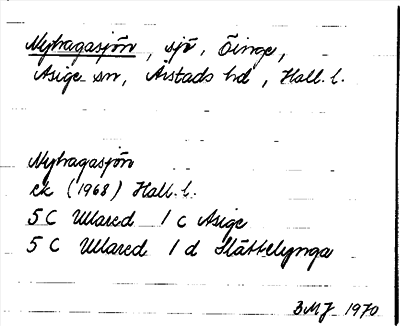 Nyhagasjön, sjö, Öinge,
Asige sn, Årstads hd, Hall. l.
Nyhagasjön
ek (1968) Hall. l.
5 C Ullared 1 c Asige
5 C Ullared 1 d Slättelynga
BMJ 1970